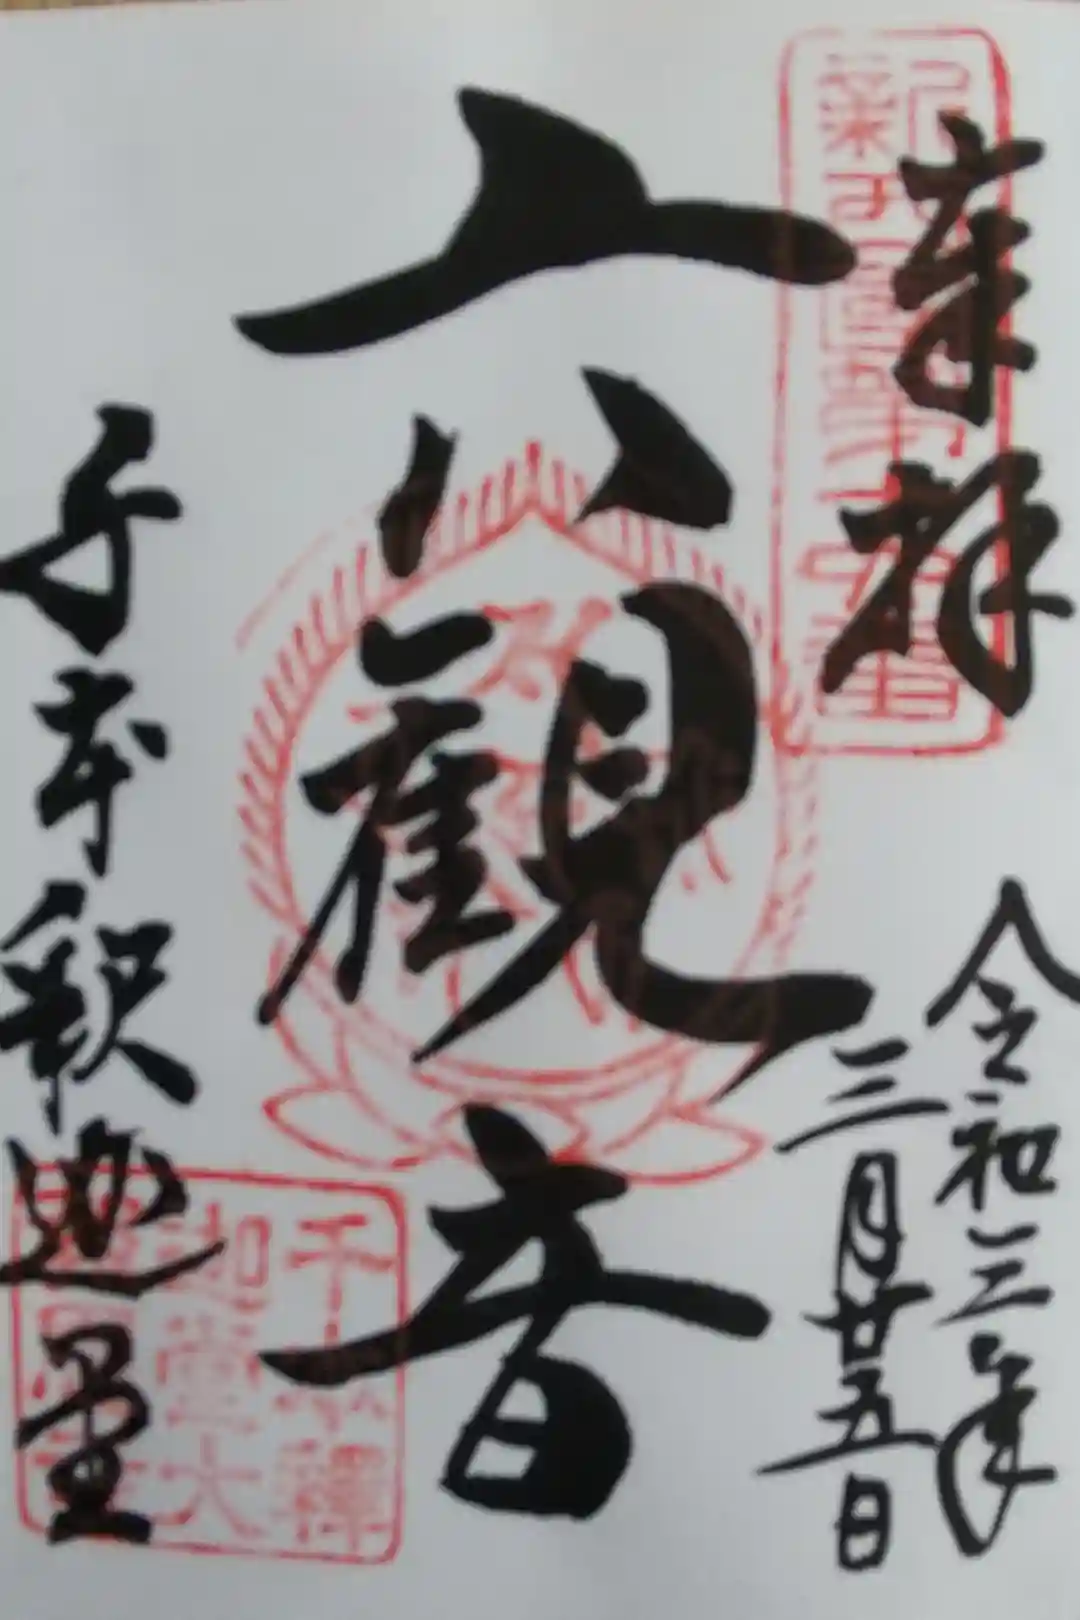 奉拝
令和三年
三月廿五日
六観音
千本釈迦堂
千本釋
迦堂大